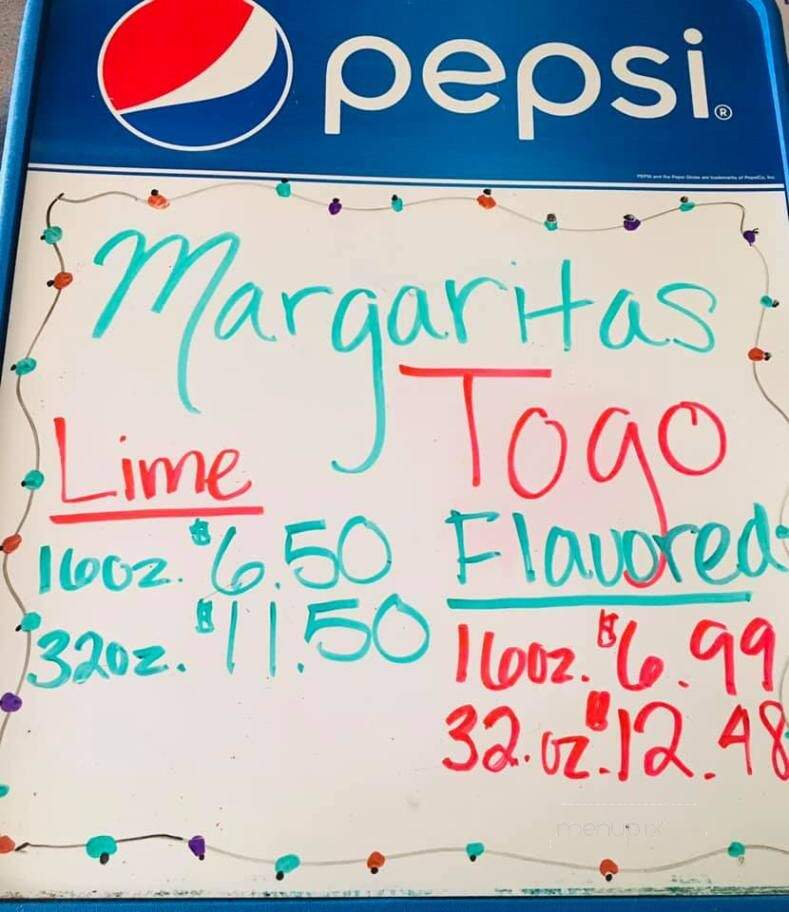 pepsi®
PEPSI and the Pepsi Globe are trademarks of PepsiCo, Inc.
Margaritas
Togo
Lime
16oz. $6.50
32oz. $11.50
Flavored
16oz. $6.99
32.oz. $12.48
menupix